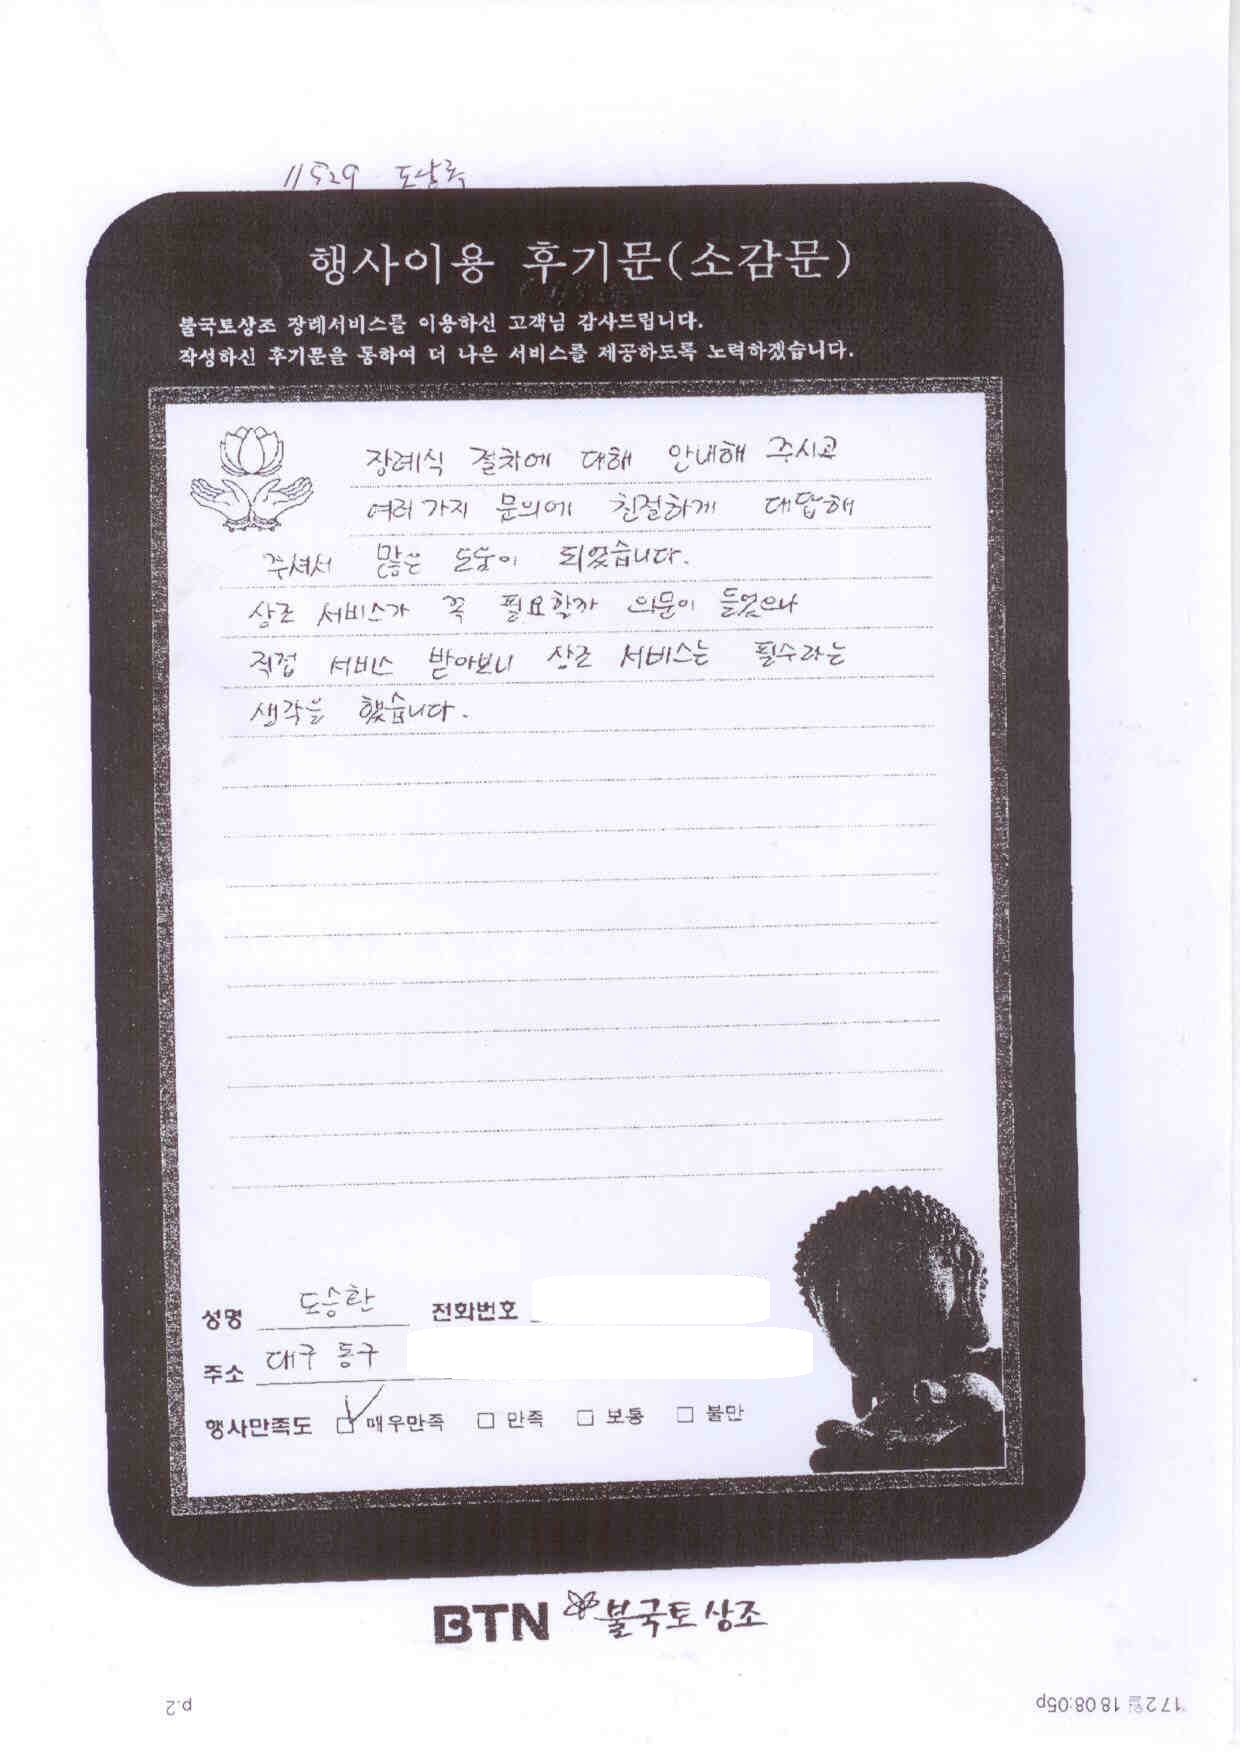 11529 도상록
행사이용 후기문(소감문)
불국토상조 장례서비스를 이용하신 고객님 감사드립니다.
작성하신 후기문을 통하여 더 나은 서비스를 제공하도록 노력하겠습니다.
장례식 절차에 대해 안내해 주시고
여러가지 문의에 친절하게 대답해
주셔서 많은 도움이 되었습니다.
상조 서비스가 꼭 필요할까 의문이 들었으나
직접 서비스 받아보니 상조 서비스는 필수라는
생각을 했습니다.
성명 도승환 전화번호
주소 대구 동구
행사만족도 매우만족 만족 보통 불만
BTN 불국토상조
p.2
'17 2월 18 08:05p